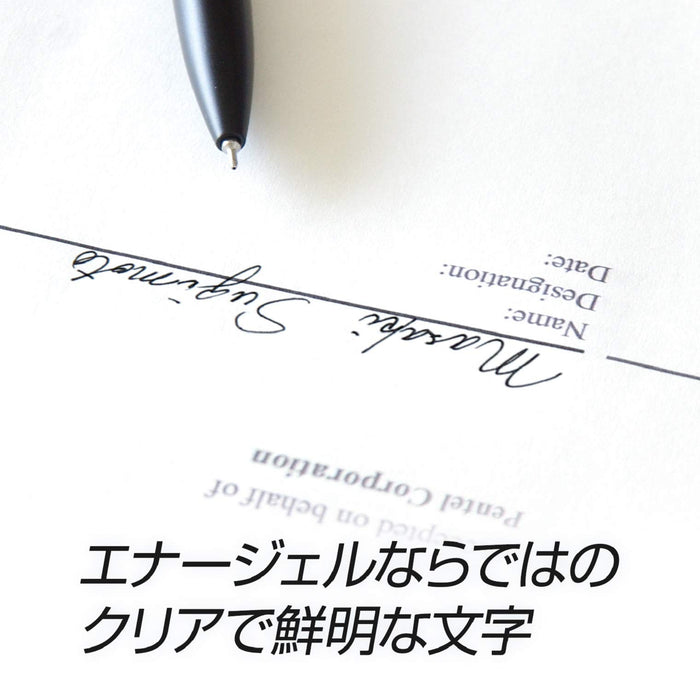 on behalf of
Pentel Corporation
Masaki Sugimoto
Name:
Designation:
Date:
エナージェルならではの
クリアで鮮明な文字